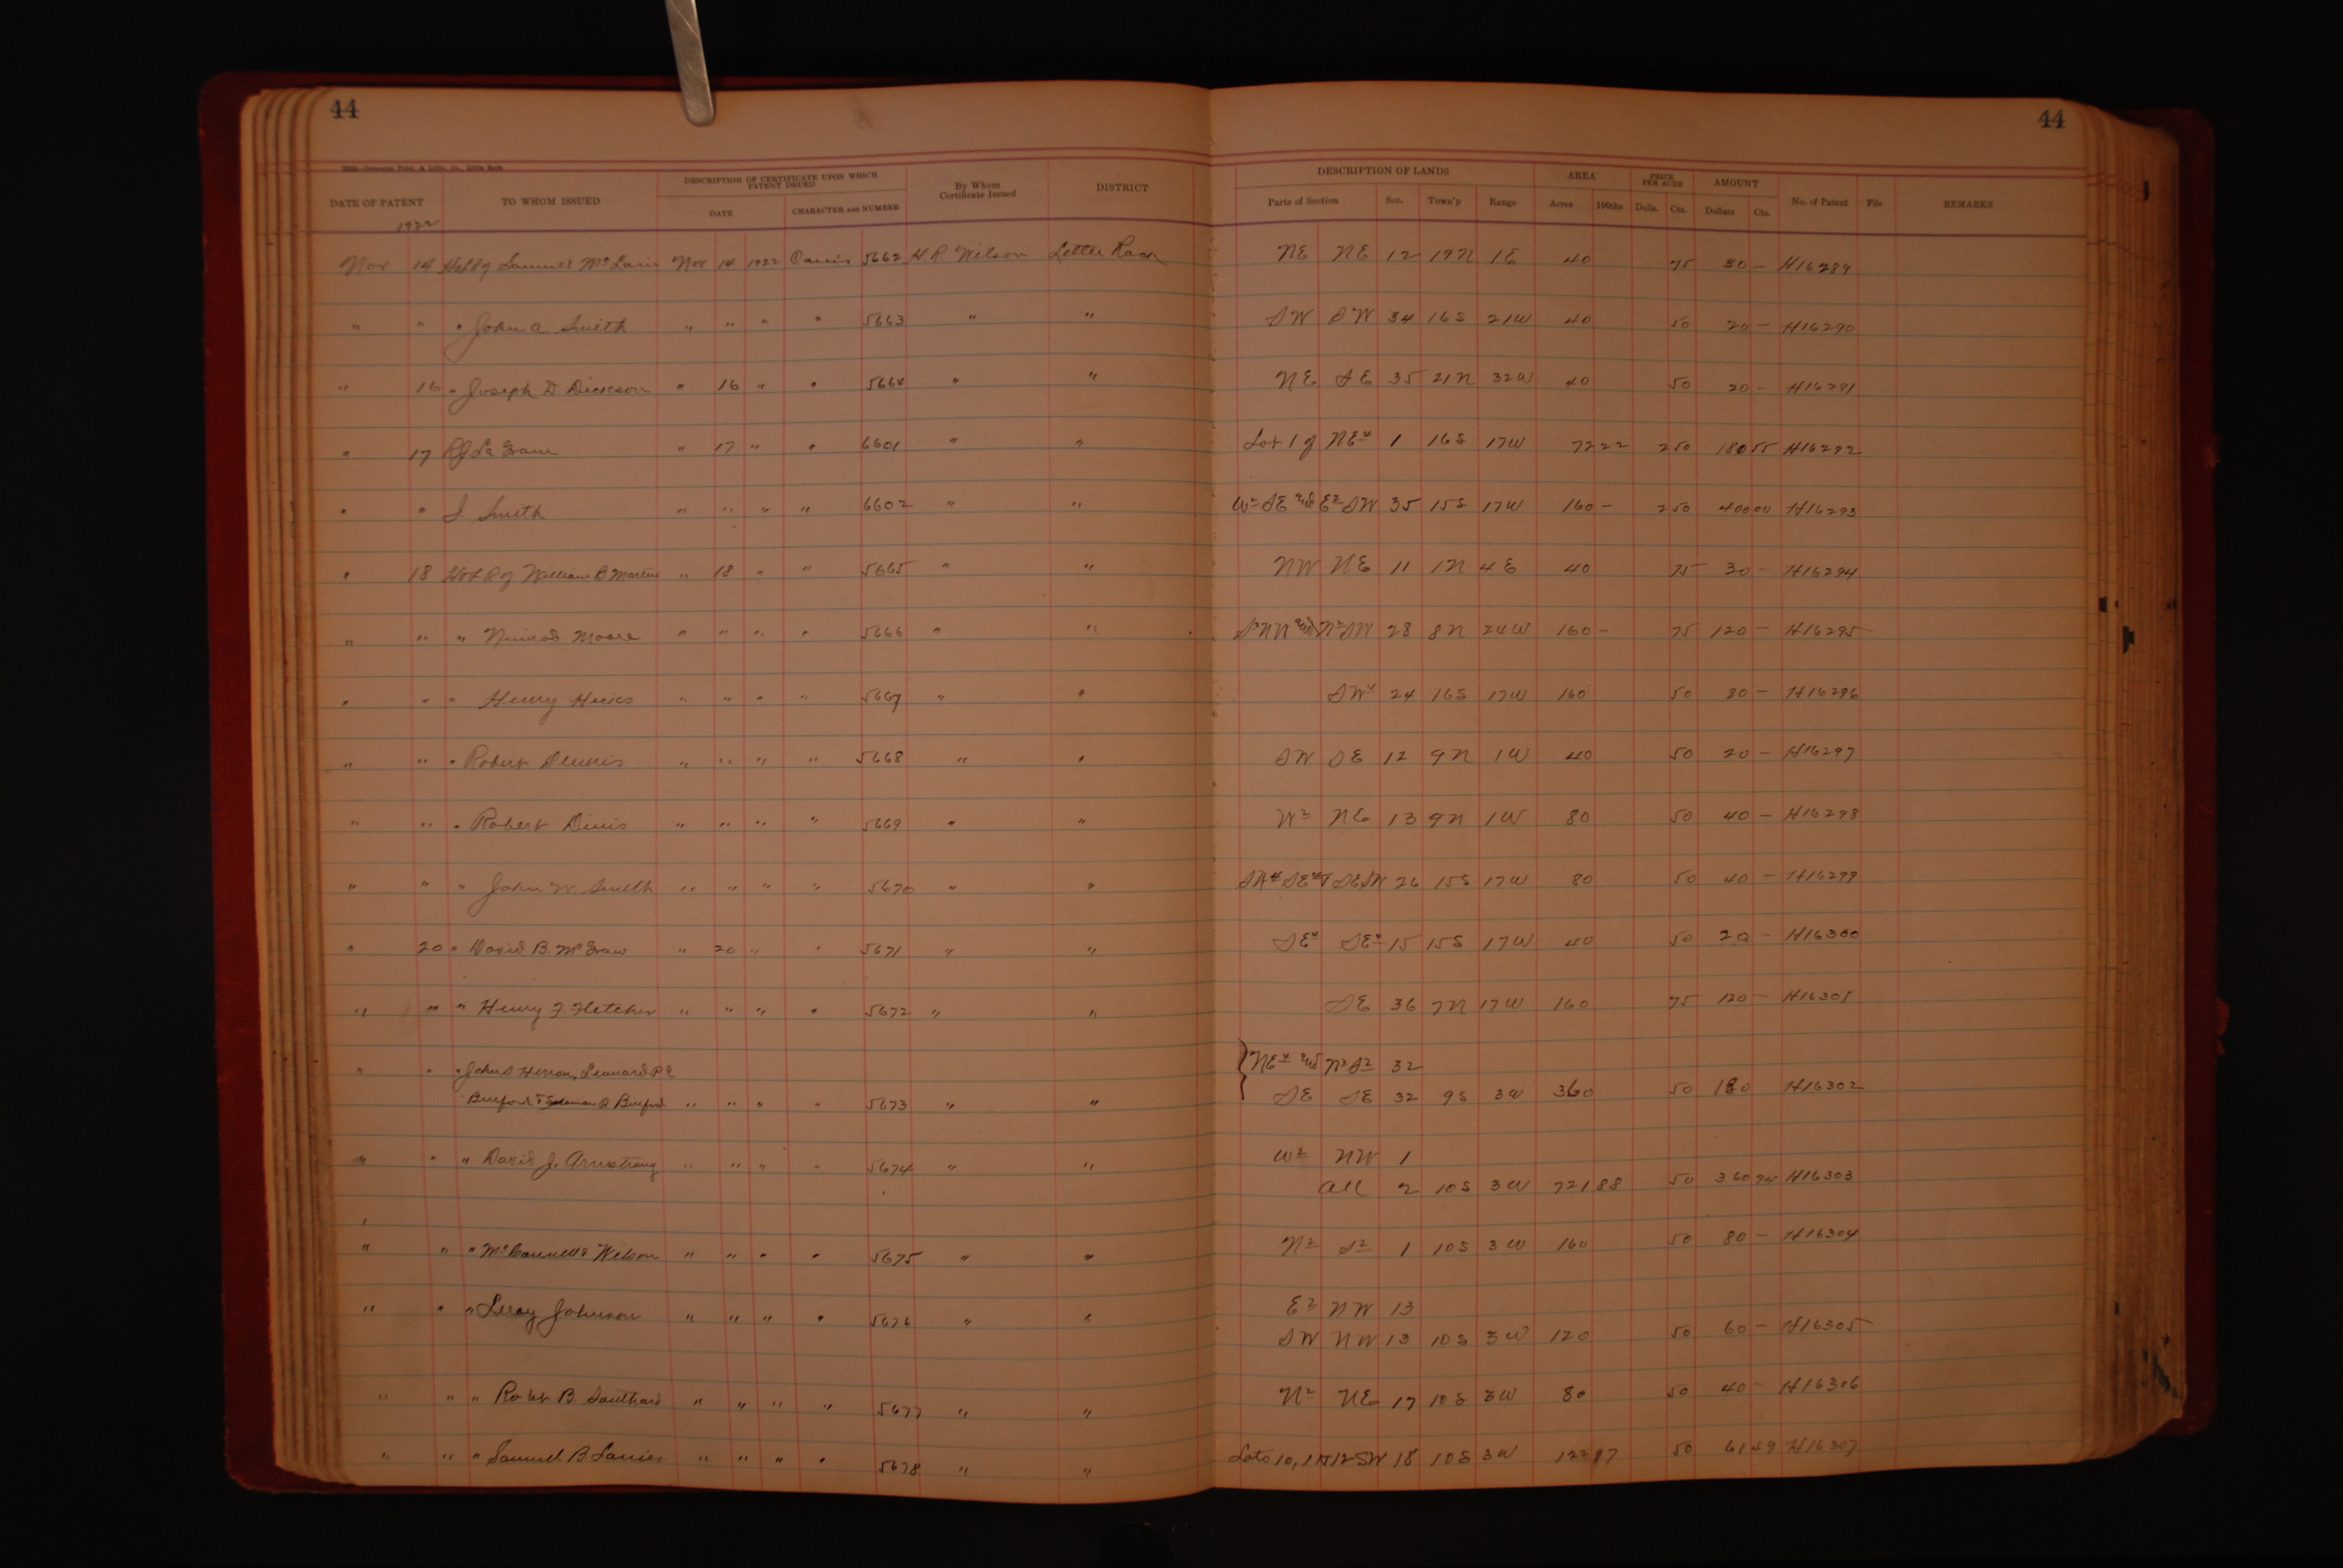 44 44
DATE OF PATENT TO WHOM ISSUED DESCRIPTION OF CERTIFICATE UPON WHICH PATENT ISSUED By Whom Certificate Issued DISTRICT DESCRIPTION OF LANDS AREA PRICE PER ACRE AMOUNT No. of Patent File REMARKS
DATE CHARACTER AND NUMBER Parts of Section Sec. Town'p Range Acres 100ths Dolls. Cts. Dollars Cts.
1922
Nov 14 Samuel Nov 14 1922 5662 H.P. Wilson NE NE 12 19N 1E 40 75 30 - H16289
" " " John A. Smith " " " " 5663 " " SW SW 34 16S 21W 40 50 20 - H16290
" 16 " Joseph D Dickson " 16 " " 5664 " " NE SE 35 21N 32W 40 50 20 - H16291
" 17 " 17 " " 6601 " " Lot 1 of NE4 1 16S 17W 72 22 2 50 180 55 H16292
" " J. Smith " " " " 6602 " " W2 SE and E2 SW 35 15S 17W 160 - 2 50 400 00 H16293
" 18 William B Martin " 18 " " 5665 " " NW NE 11 1N 4E 40 75 30 - H16294
" " " Nimrod Moore " " " " 5666 " " and N2 SW 28 8N 24W 160 - 75 120 - H16295
" " " Henry Hicks " " " " 5667 " " SW4 24 16S 17W 160 50 80 - H16296
" " " Robert Dennis " " " " 5668 " " SW SE 12 9N 1W 40 50 20 - H16297
" " " Robert Dinis " " " " 5669 " " W2 NE 13 9N 1W 80 50 40 - H16298
" " " John W Smith " " " " 5670 " " SW4 SE4 & SE SW 26 15S 17W 80 50 40 - H16299
" 20 " David B. McGraw " 20 " " 5671 " " SE4 SE4 15 15S 17W 40 50 20 - H16300
" " " Henry F Fletcher " " " " 5672 " " SE 36 7N 17W 160 75 120 - H16301
" " " John S Herron, Leonard P C NE4 and N2 S2 32
Burford & Burford " " " " 5673 " " SE SE 32 9S 3W 360 50 180 H16302
" " " David J. Armstrong " " " " 5674 " " W2 NW 1
All 2 10S 3W 721 88 50 360 94 H16303
" " " Wilson " " " " 5675 " " N2 S2 1 10S 3W 160 50 80 - H16304
" " " Leroy Johnson " " " " 5676 " " E2 NW 13
SW NW 13 10S 3W 120 50 60 - H16305
" " " Robt B. Southard " " " " 5677 " " N2 NE 17 10S 3W 80 50 40 - H16306
" " " Samuel B. Lanier " " " " 5678 " " Lots 10, 11 & 12 SW 18 10S 3W 122 97 50 61 49 H16307